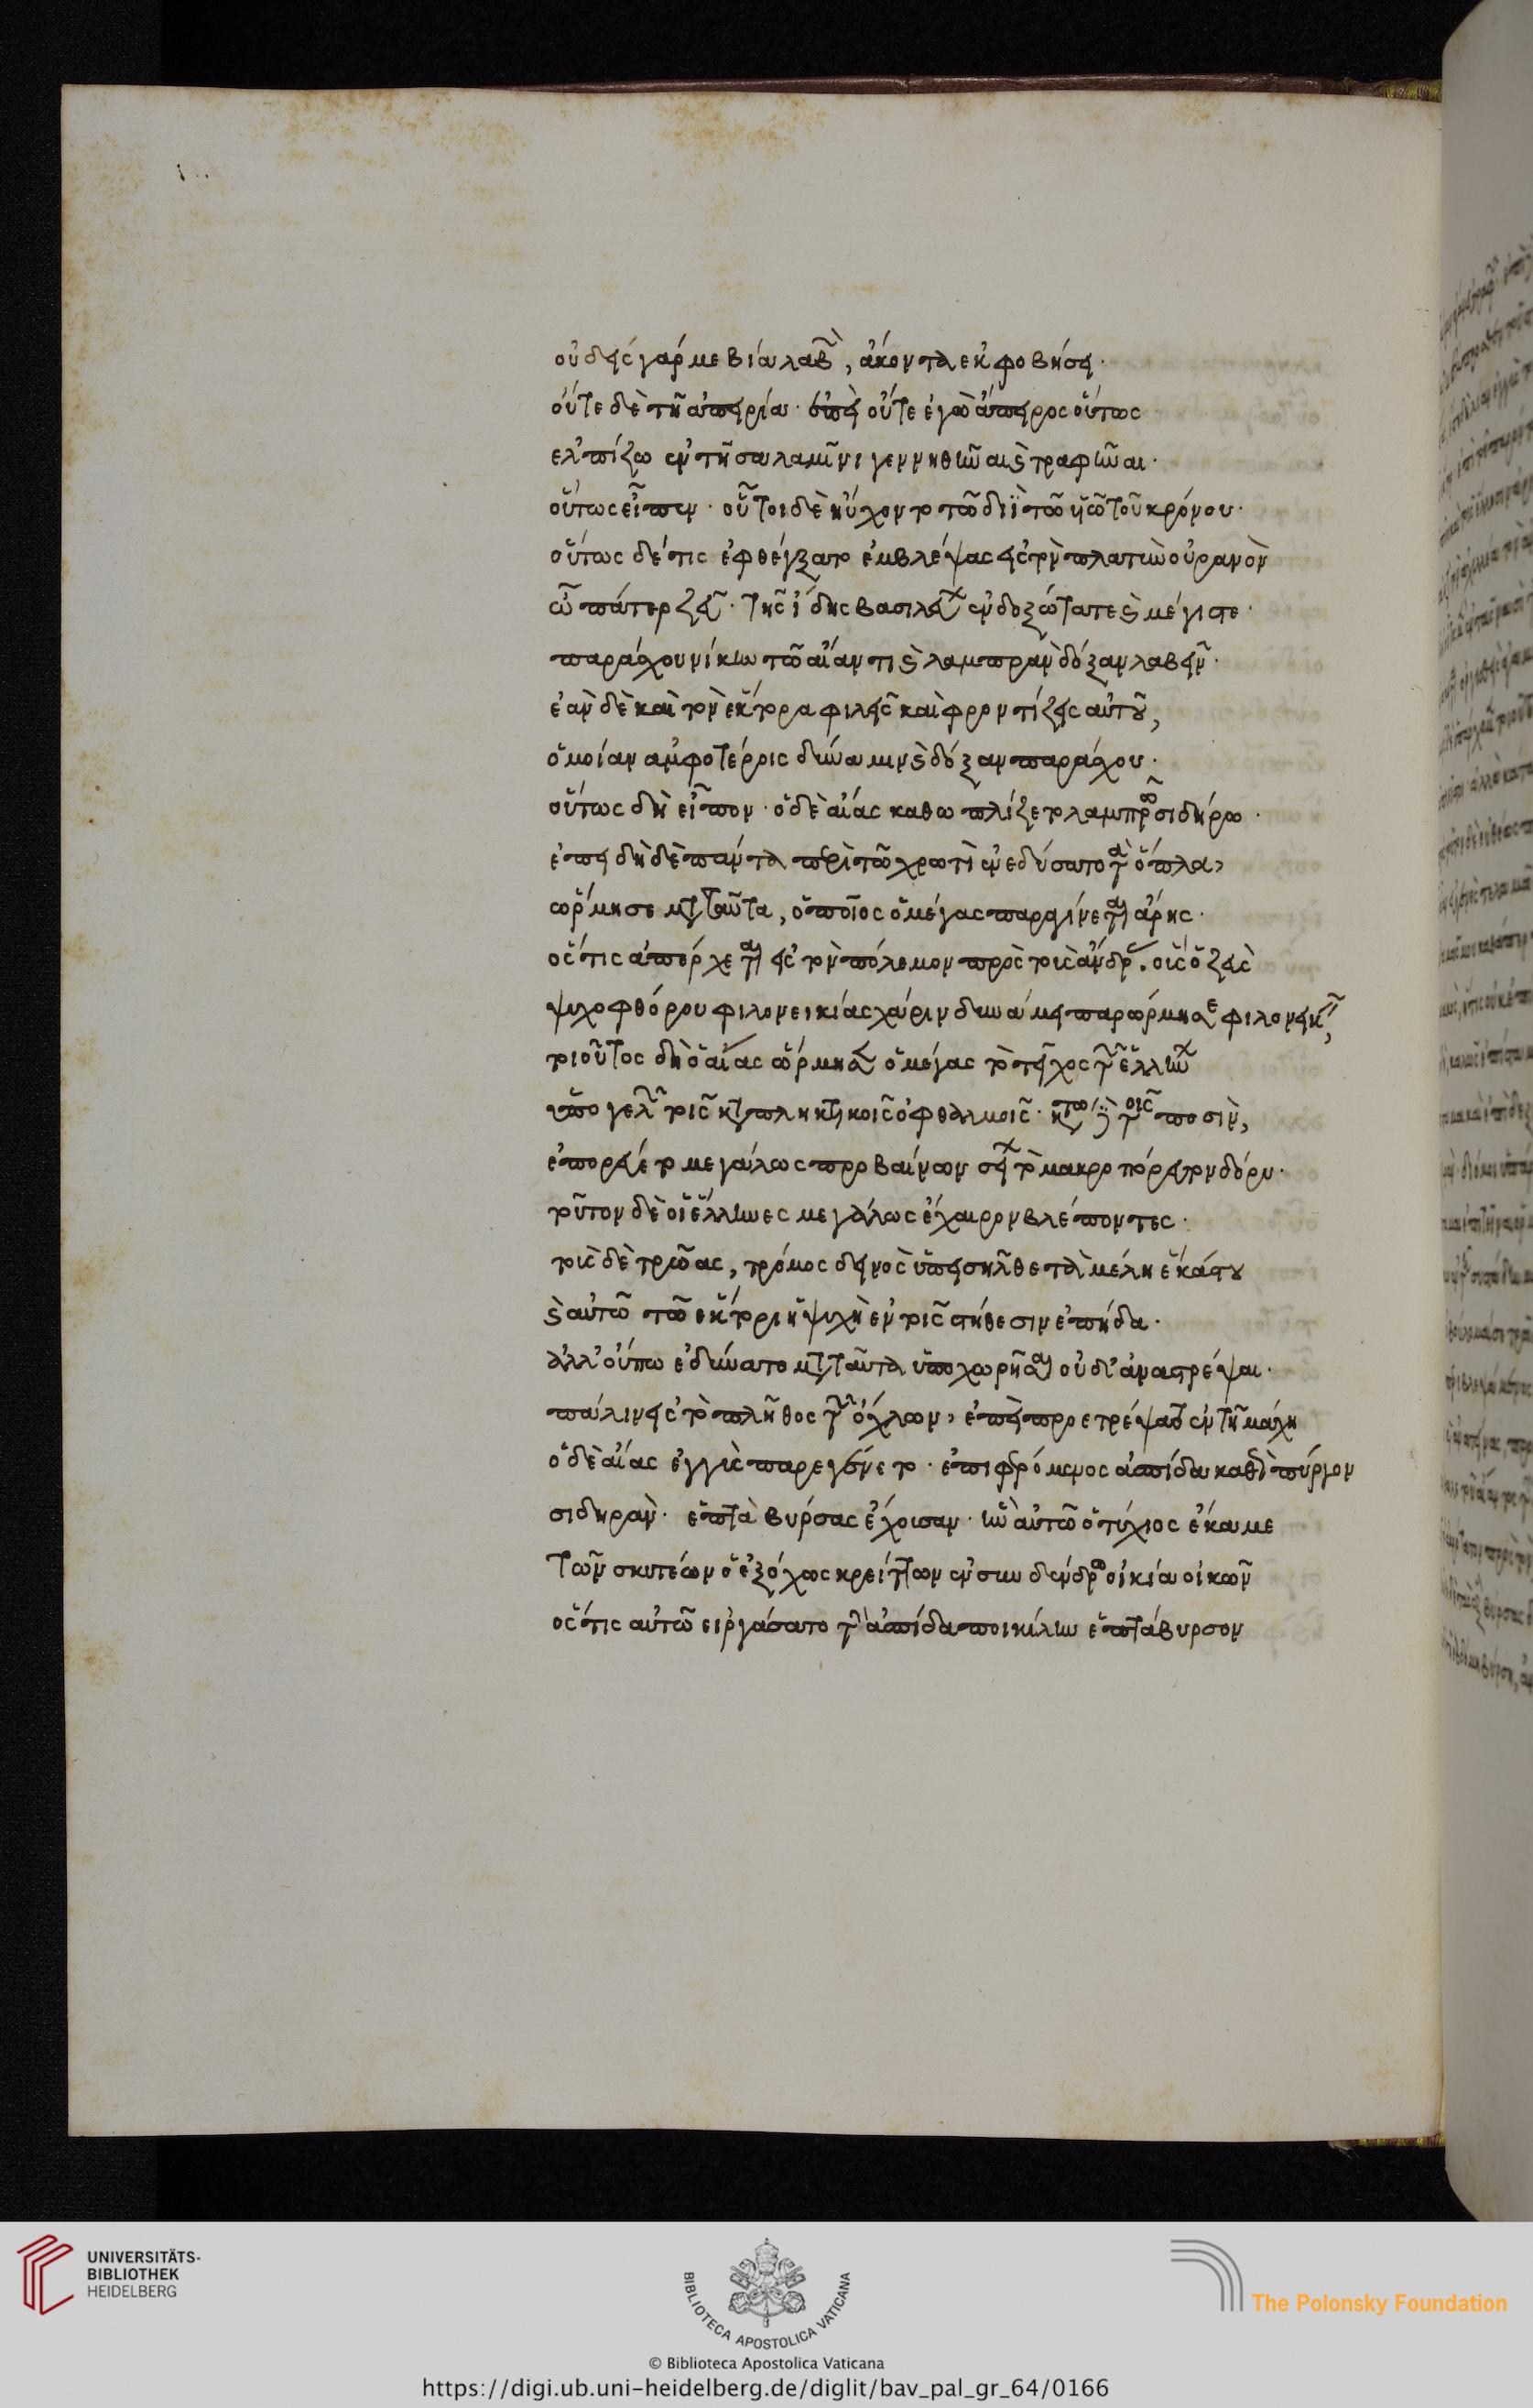 οὐδεὶς γάρ με βία λαβὼν, ἄκοντα ἐκφοβήσει·
οὔτε δὲ τῆ ἀπειρία· ἐπεὶ οὔτε ἐγὼ ἄπειρος οὕτως
ελπίζω ἐν τῆ σαλαμῖνι γεννηθῆναι καὶ τραφῆναι·
οὕτως εἶπεν· οὗτοι δὲ ηὔχοντο τῶ διῒ τῶ υἱῶ τοῦ κρόνου·
οὕτως δέ τις ἐφθέγξατο ἐμβλέψας εἰς τὸν πλατὺν οὐρανὸν
ὦ πάτερ ζεῦ· τῆς ἴδης βασιλεῦ ἐνδοξώτατε καὶ μέγιστε·
παράσχου νίκην τῶ αἴαντι καὶ λαμπρὰν δόξαν λαβεῖν·
ἐὰν δὲ καὶ τὸν ἕκτορα φιλεῖς καὶ φροντίζεις αὐτοῦ,
ὁμοίαν αμφοτέροις δύναμιν καὶ δόξαν παράσχου·
οὕτως δὴ εἶπον· ὁ δὲ αἴας καθωπλίζετο λαμπρῶ σιδήρω·
ἐπειδὴ δὲ πάντα περὶ τῶ χρωτὶ ἐνεδύσατο τὰ ὅπλα,
ὥρμησε μετὰ ταῦτα, ὁποῖος ὁ μέγας παραγίνεται ἄρης·
ὅς τις ἀπέρχεται εἰς τὸν πόλεμον πρὸς τοὺς ἄνδρας· οὓς ὁ ζεὺς
ψυχοφθόρου φιλονεικίας χάριν δυνάμει παρώρμησε φιλονεικεῖν,
τοιοῦτος δὴ ὁ αἴας ὥρμησεν ὁ μέγας τὸ τεῖχος τῶν ἑλλήνων
ὑπογελῶν τοῖς καταπληκτικοῖς ὀφθαλμοῖς· κάτω δὲ τοῖς ποσὶν,
ἐπορεύετο μεγάλως προβαίνων σείων τὸ μακροπόρευτον δόρυ·
τοῦτον δὲ οἱ ἕλληνες μεγάλως ἔχαιρον βλέποντες·
τοὺς δὲ τρῶας, τρόμος δεινὸς ὑπεισῆλθε τὰ μέλη ἑκάστου
καὶ αὐτῶ τῶ ἕκτορι ἡ ψυχὴ ἐν τοῖς στήθεσιν ἐπήδα·
ἀλλ' οὔπω ἐδύνατο μετὰ ταῦτα ὑποχωρῆσαι οὐδ' ἀναστρέψαι·
πάλιν εἰς τὸ πλῆθος τῶν ὄχλων, ἐπεὶ προετρέψατο ἐν τῆ μάχη
ὁ δὲ αἴας ἐγγὺς παρεγένετο· ἐπιφερόμενος ἀσπίδα καθὰ πύργον
σιδηρὰν· ἑπτὰ βύρσας ἔχουσαν· ἣν αὐτῶ ὁ τύχιος ἔκαμε
τῶν σκυτέων ὁ ἐξόχως κρείττων ἐν συνδένδρω οἰκία οἰκῶν
ὅς τις αὐτῶ εἰργάσατο τὴν ἀσπίδα ποικίλην ἑπτάβυρσον
UNIVERSITÄTS-
BIBLIOTHEK
HEIDELBERG
BIBLIOTECA APOSTOLICA VATICANA
The Polonsky Foundation
© Biblioteca Apostolica Vaticana
https://digi.ub.uni-heidelberg.de/diglit/bav_pal_gr_64/0166